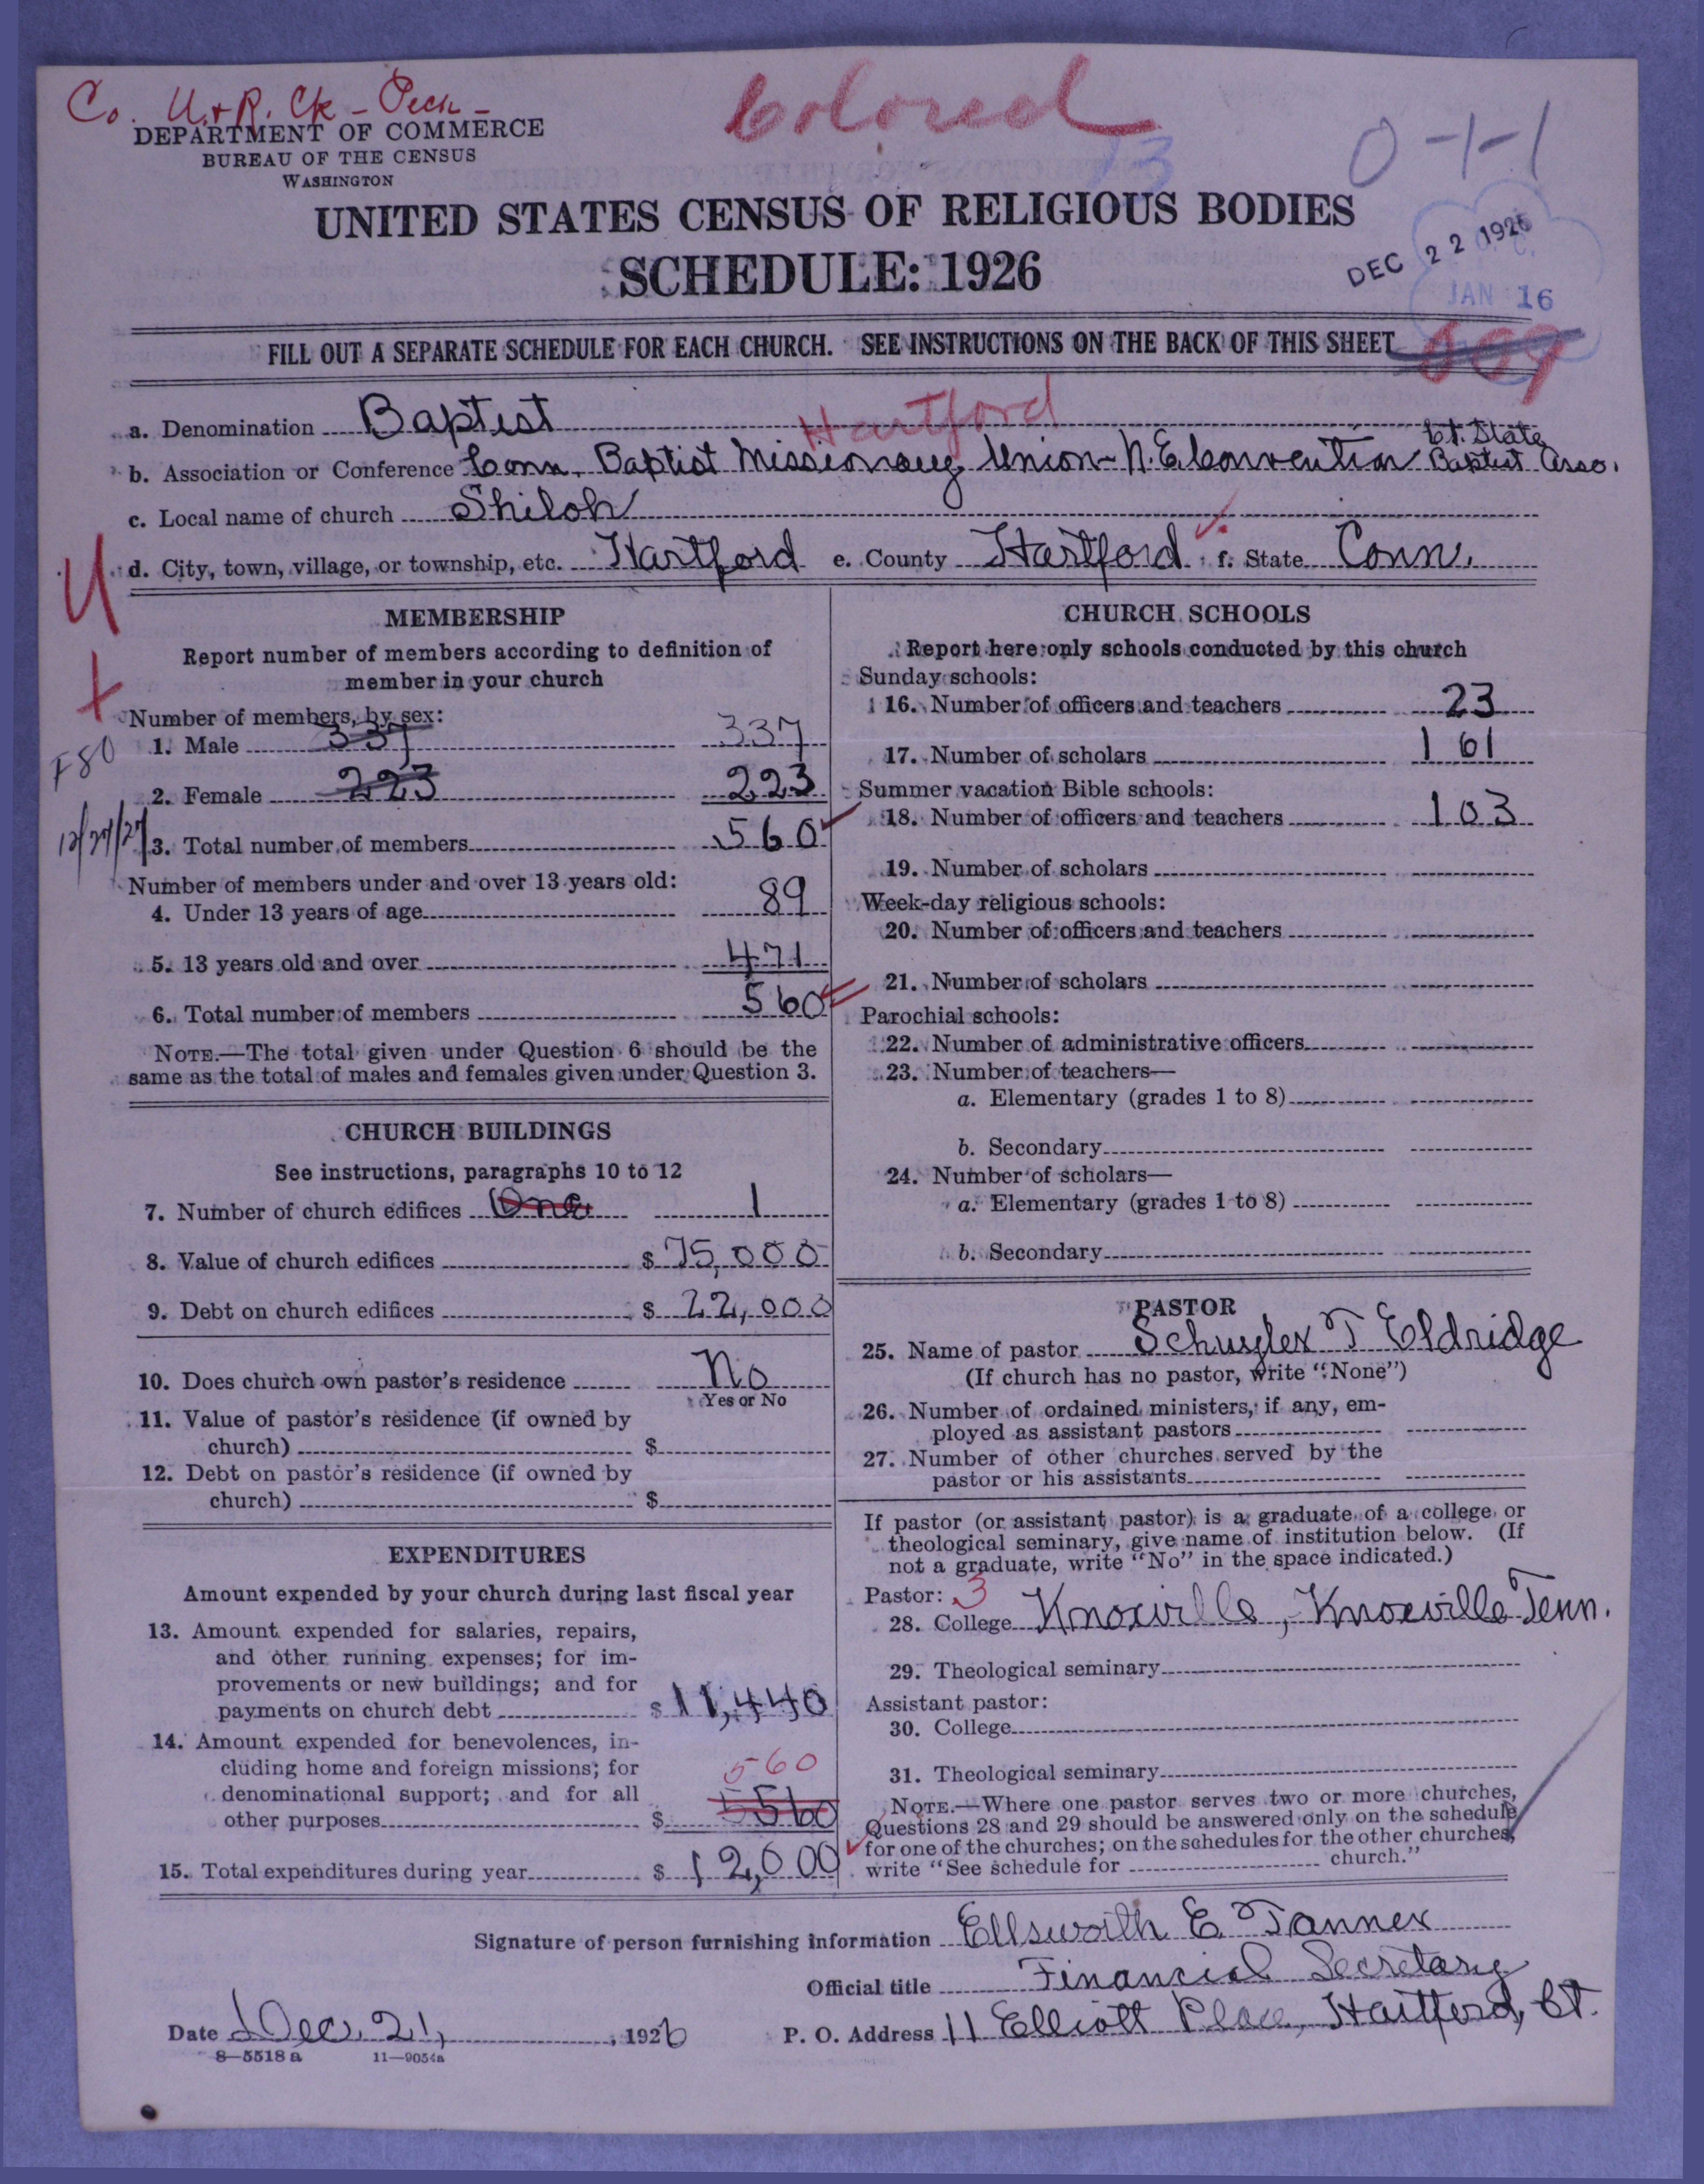 Co. U.+R. Ck - Pech -
Colored
DEPARTMENT OF COMMERCE
BUREAU OF THE CENSUS
WASHINGTON
13
0-1-1
UNITED STATES CENSUS OF RELIGIOUS BODIES
SCHEDULE: 1926
DEC 22 1926
JAN 16
FILL OUT A SEPARATE SCHEDULE FOR EACH CHURCH. SEE INSTRUCTIONS ON THE BACK OF THIS SHEET
609
Hartford
a. Denomination Baptist
b. Association or Conference Conn. Baptist Missionary Union - N.E. Convention Ct. State Baptist Asso.
c. Local name of church Shiloh
d. City, town, village, or township, etc. Hartford e. County Hartford f. State Conn.
U
+
F80
12/27/27
MEMBERSHIP
Report number of members according to definition of
member in your church
Number of members, by sex:
1. Male 337 337
2. Female 223 223
3. Total number of members 560
Number of members under and over 13 years old:
4. Under 13 years of age 89
5. 13 years old and over 471
6. Total number of members 560
NOTE.—The total given under Question 6 should be the
same as the total of males and females given under Question 3.
CHURCH BUILDINGS
See instructions, paragraphs 10 to 12
7. Number of church edifices One 1
8. Value of church edifices $ 75,000
9. Debt on church edifices $ 22,000
10. Does church own pastor's residence No
Yes or No
11. Value of pastor's residence (if owned by
church) $
12. Debt on pastor's residence (if owned by
church) $
EXPENDITURES
Amount expended by your church during last fiscal year
13. Amount expended for salaries, repairs,
and other running expenses; for im-
provements or new buildings; and for
payments on church debt $ 11,440
14. Amount expended for benevolences, in-
cluding home and foreign missions; for
denominational support; and for all
560
other purposes $ 5560
15. Total expenditures during year $ 12,000
CHURCH SCHOOLS
Report here only schools conducted by this church
Sunday schools:
16. Number of officers and teachers 23
17. Number of scholars 161
Summer vacation Bible schools:
18. Number of officers and teachers 103
19. Number of scholars
Week-day religious schools:
20. Number of officers and teachers
21. Number of scholars
Parochial schools:
22. Number of administrative officers
23. Number of teachers—
a. Elementary (grades 1 to 8)
b. Secondary
24. Number of scholars—
a. Elementary (grades 1 to 8)
b. Secondary
PASTOR
25. Name of pastor Schuyler T Eldridge
(If church has no pastor, write "None")
26. Number of ordained ministers, if any, em-
ployed as assistant pastors
27. Number of other churches served by the
pastor or his assistants
If pastor (or assistant pastor) is a graduate of a college or
theological seminary, give name of institution below. (If
not a graduate, write "No" in the space indicated.)
Pastor: 3
28. College Knoxville, Knoxville Tenn.
29. Theological seminary
Assistant pastor:
30. College
31. Theological seminary
NOTE.—Where one pastor serves two or more churches,
Questions 28 and 29 should be answered only on the schedule
for one of the churches; on the schedules for the other churches,
write "See schedule for church."
Signature of person furnishing information Ellsworth E. Tanner
Official title Financial Secretary
Date Dec. 21, 1926 P. O. Address 11 Elliott Place, Hartford, Ct.
8—5518 a 11—9054a